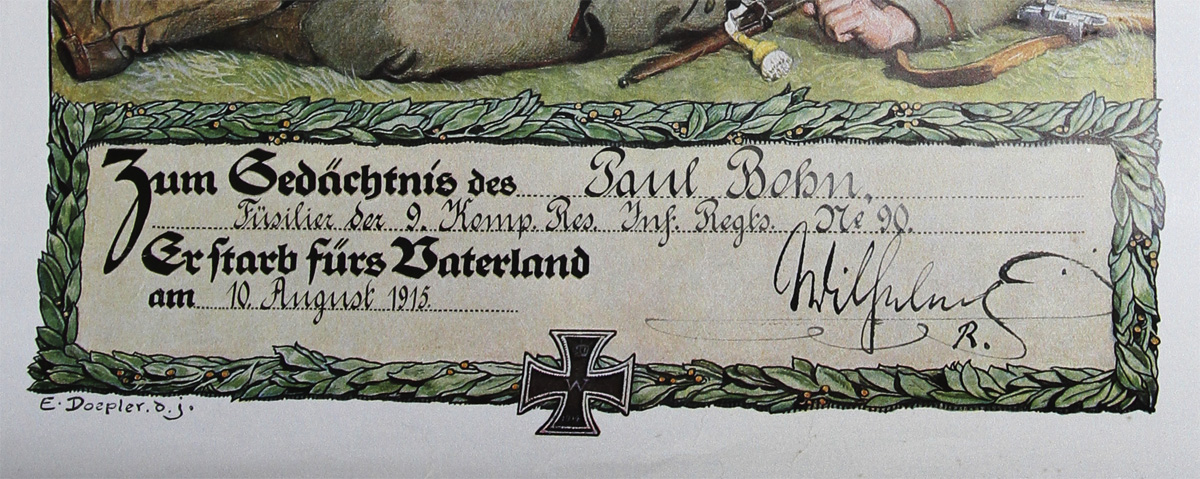 Zum Gedächtnis des Paul Bohn,
Füsilier der 9. Komp. Res. Inf. Regts. No 90.
Er starb fürs Vaterland
am 10. August 1915.
Wilhelm
R.
W
E. Doepler. d. j.